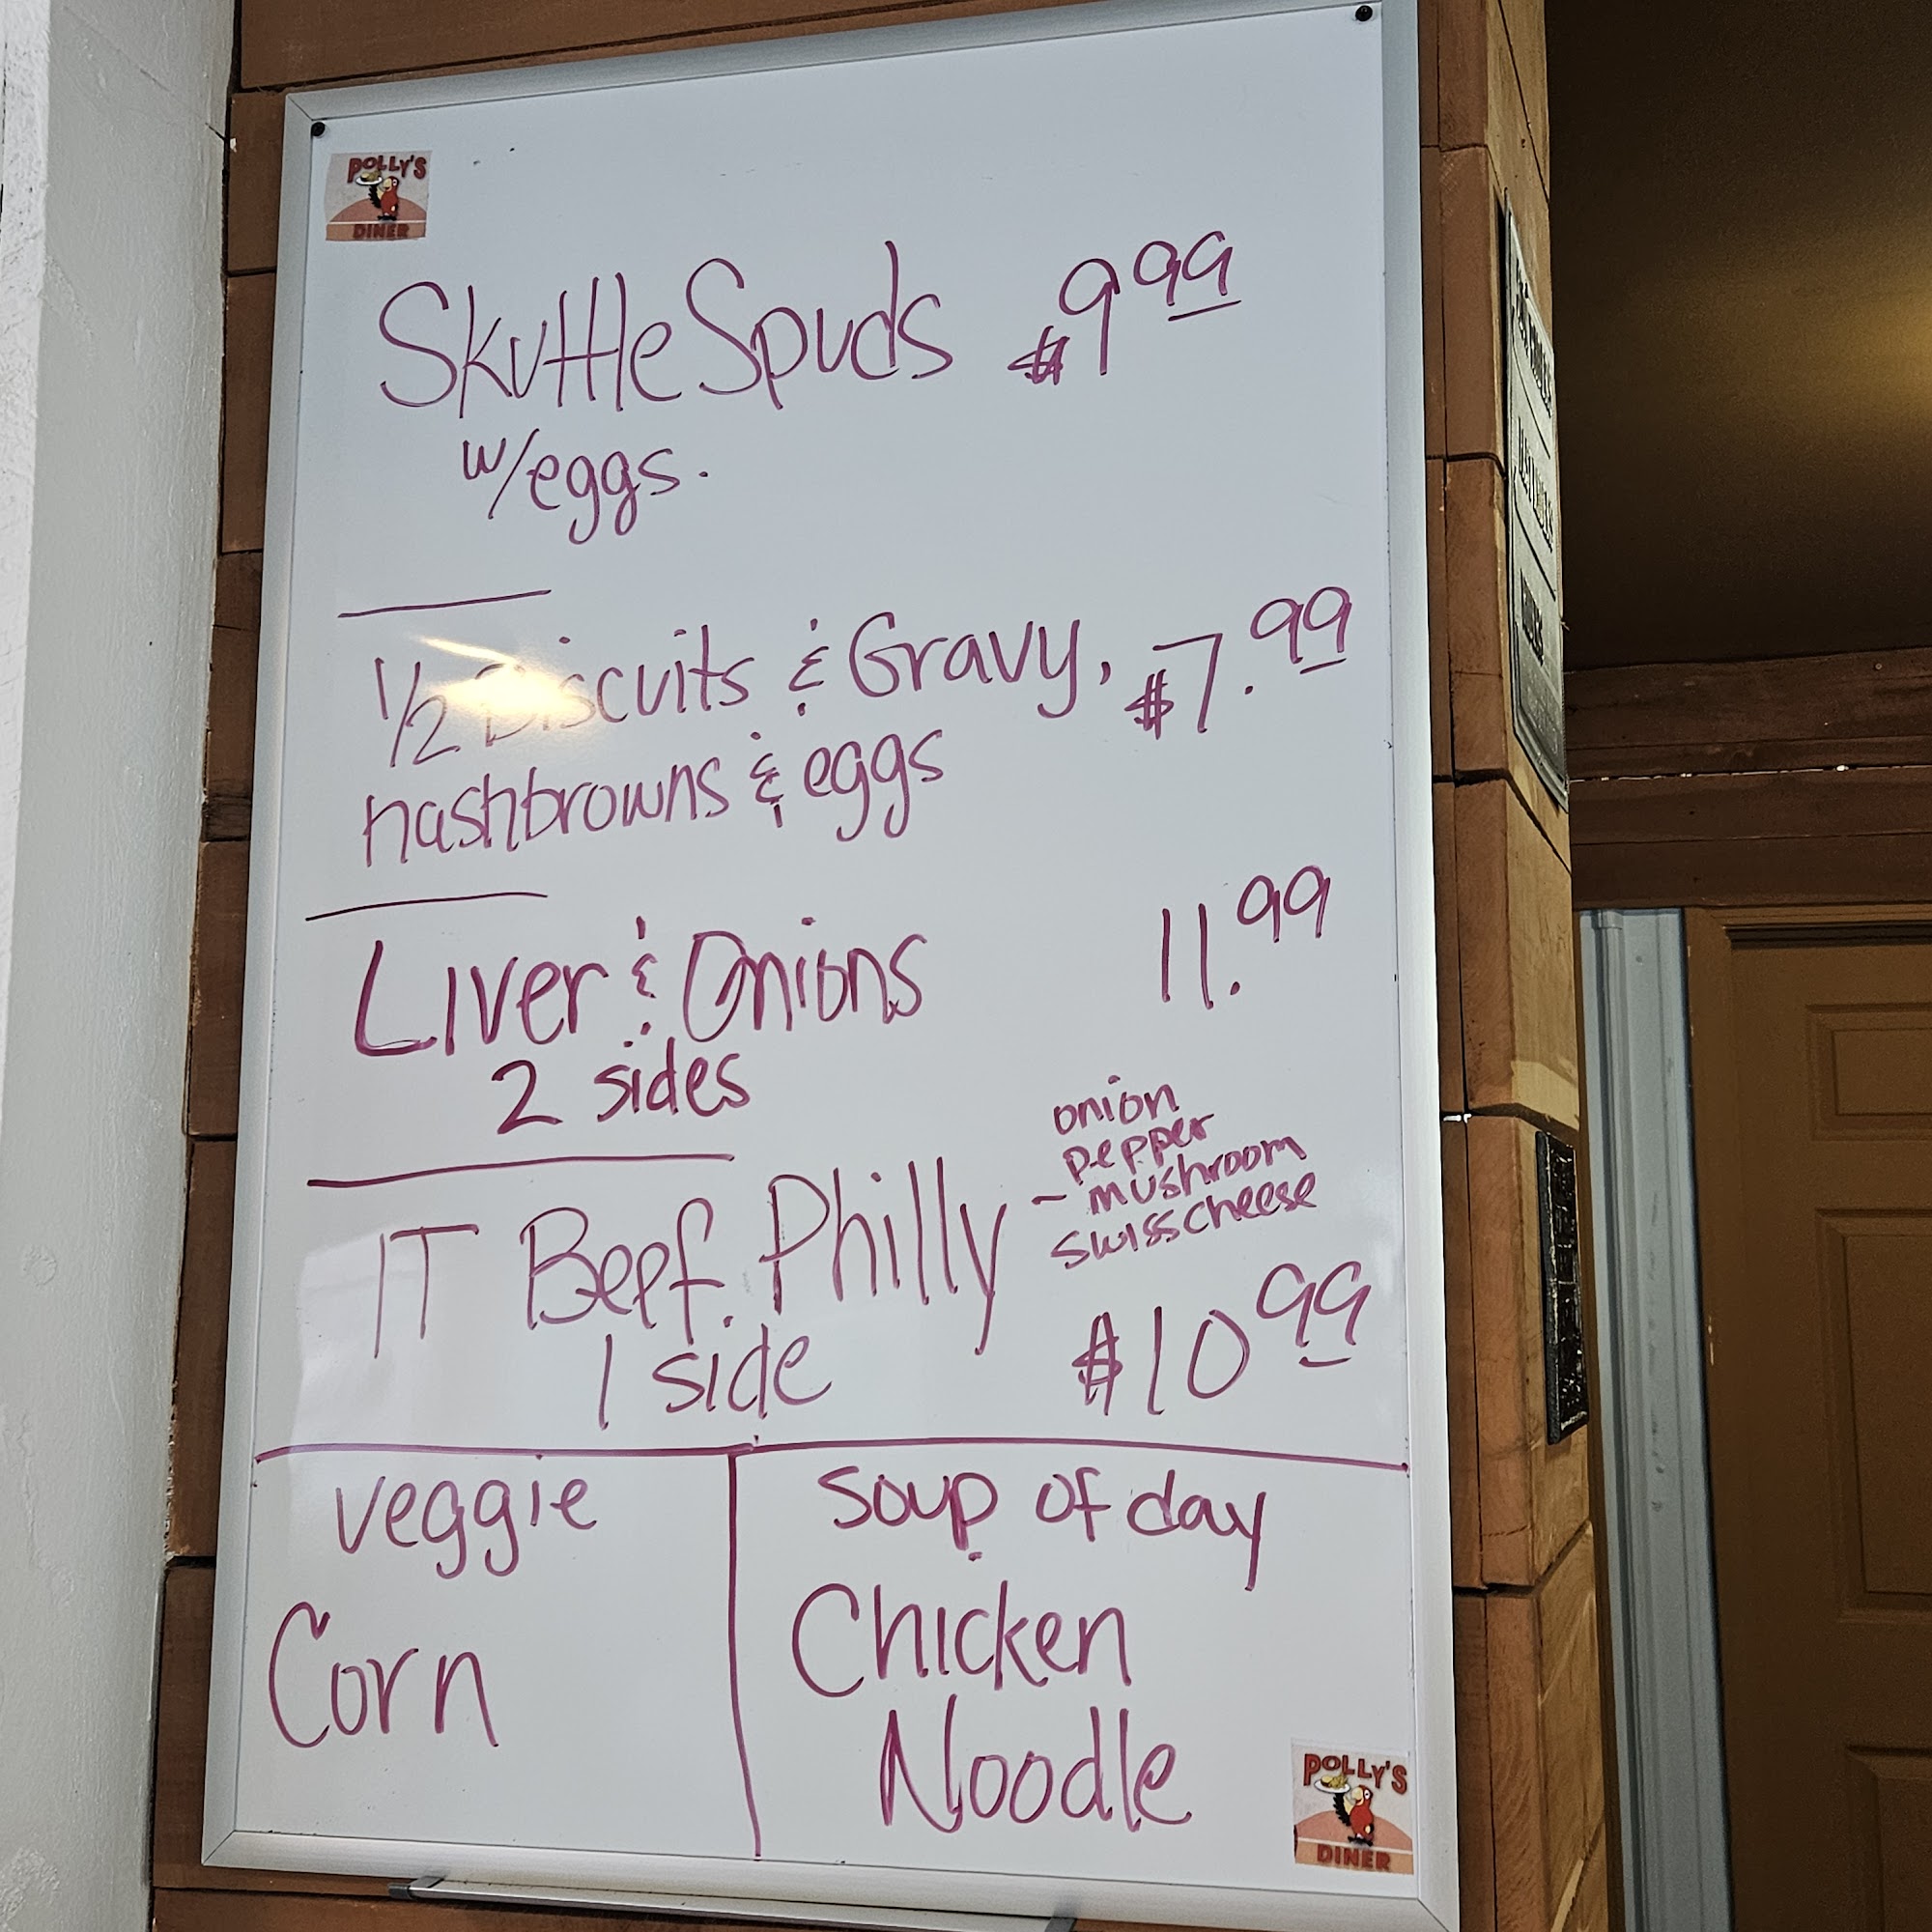 POLLY'S
DINER
Skuttle Spuds $9 99
w/eggs.
1/2 Biscuits & Gravy, $7.99
hashbrowns & eggs
Liver & Onions 11.99
2 sides
onion
pepper
- mushroom
swisscheese
IT Beef Philly
1 side $10 99
veggie
Corn
soup of day
Chicken
Noodle
POLLY'S
DINER